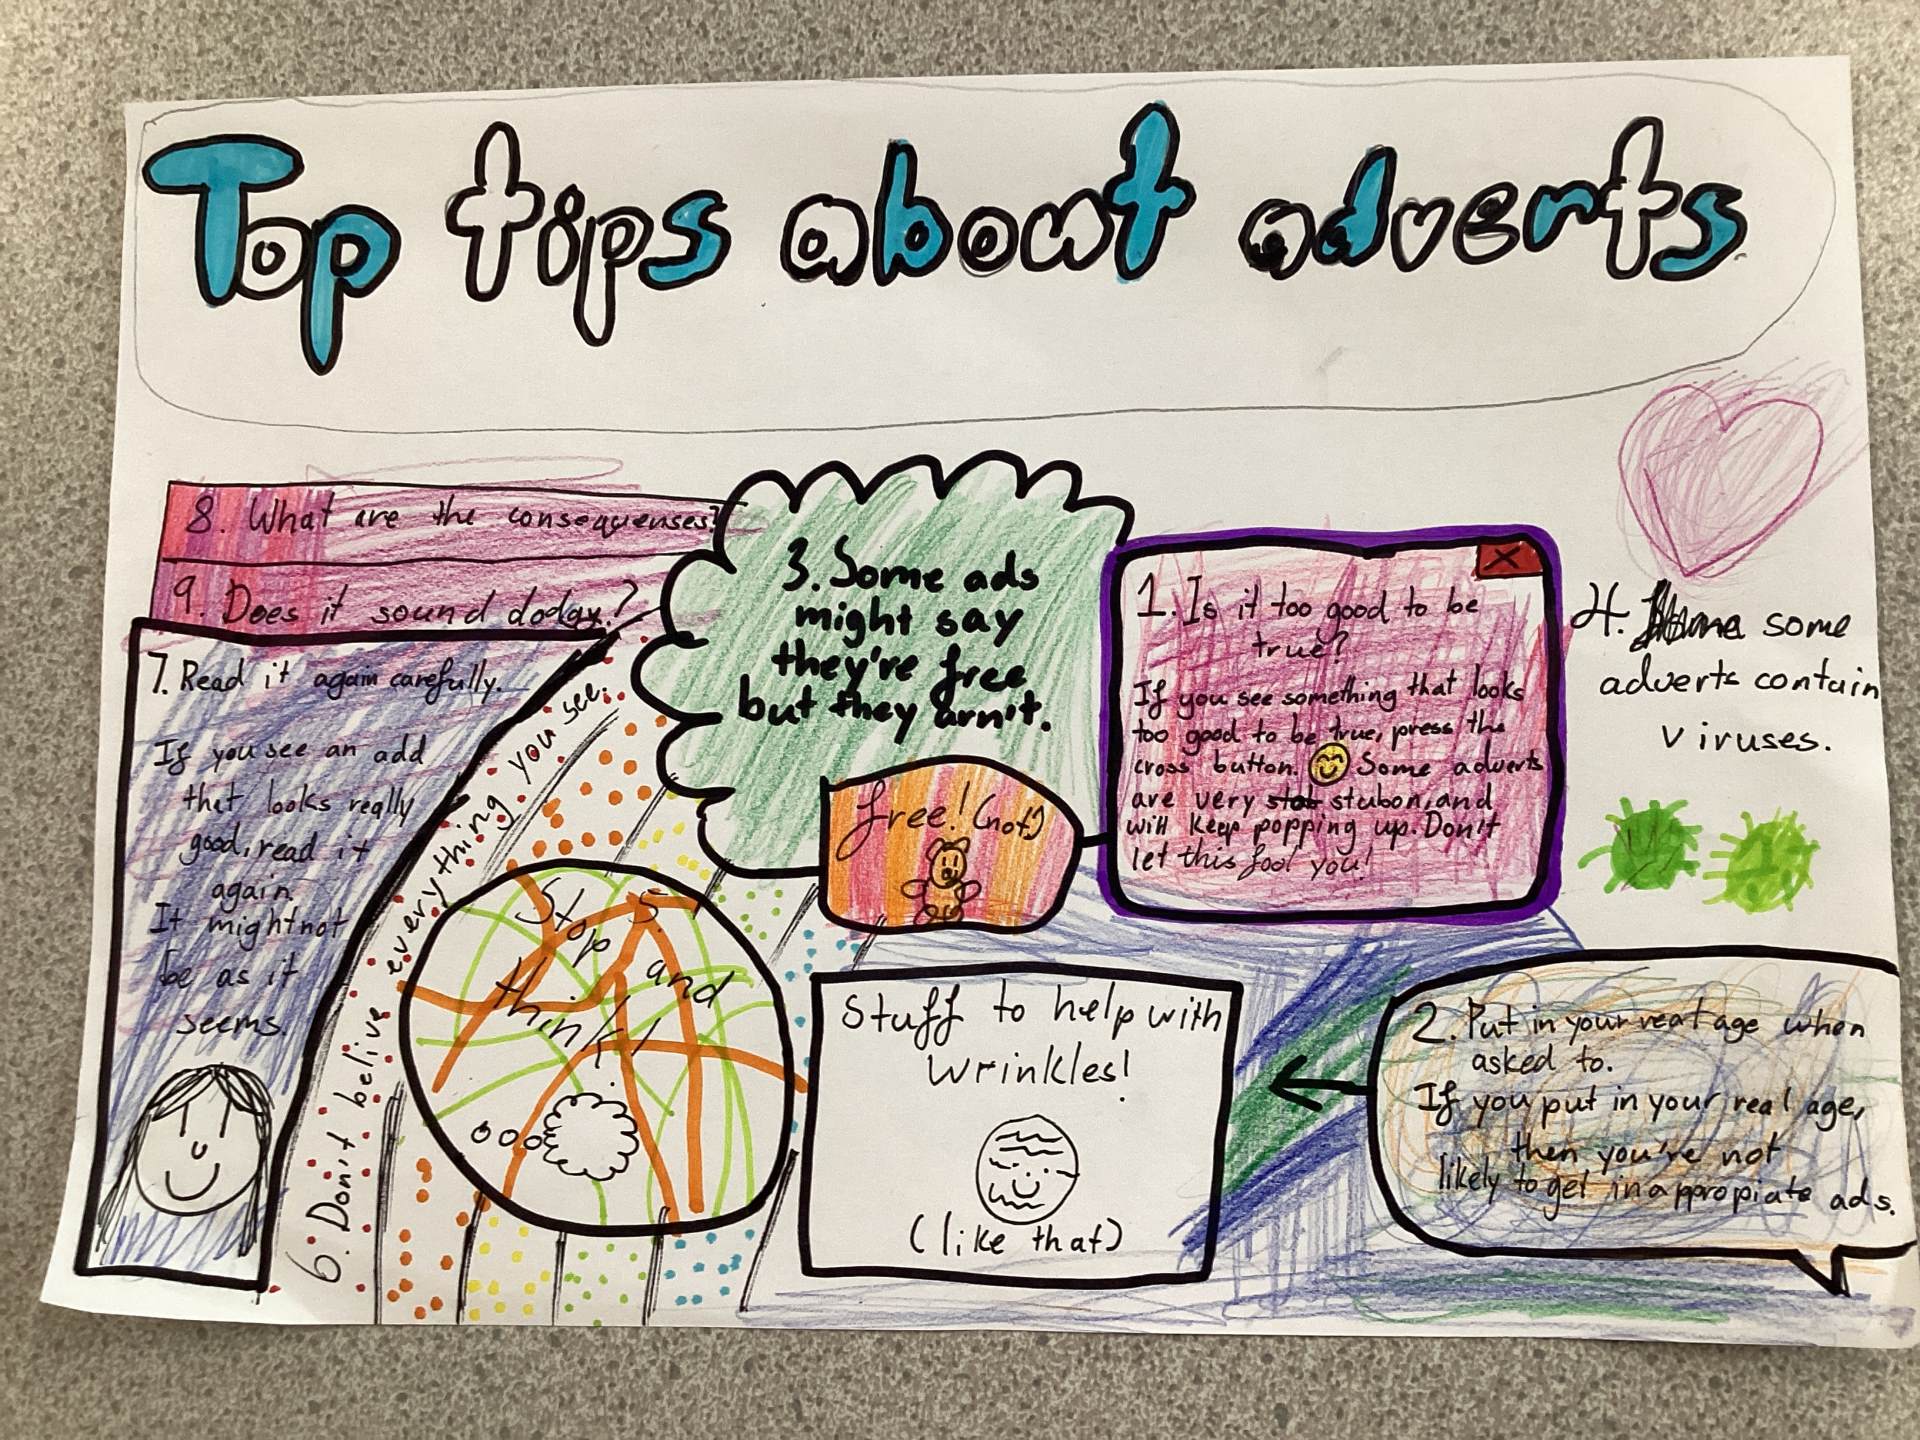 Top tips about adverts
8. What are the consequenses?
9. Does it sound dodgy?
7. Read it again carefully.
If you see an add
that looks really
good, read it
again.
It might not
be as it
seems.
6. Don't belive everything you see.
Stop 5.
and
think!
3. Some ads
might say
they're free
but they arn't.
free! (not)
1. Is it too good to be
true?
If you see something that looks
too good to be true, press the
cross button. Some adverts
are very stub stubon, and
will keep popping up. Don't
let this fool you!
4. some
adverts contain
viruses.
Stuff to help with
wrinkles!
(like that)
2. Put in your real age when
asked to.
If you put in your real age,
then you're not
likely to get inappropiate ads.